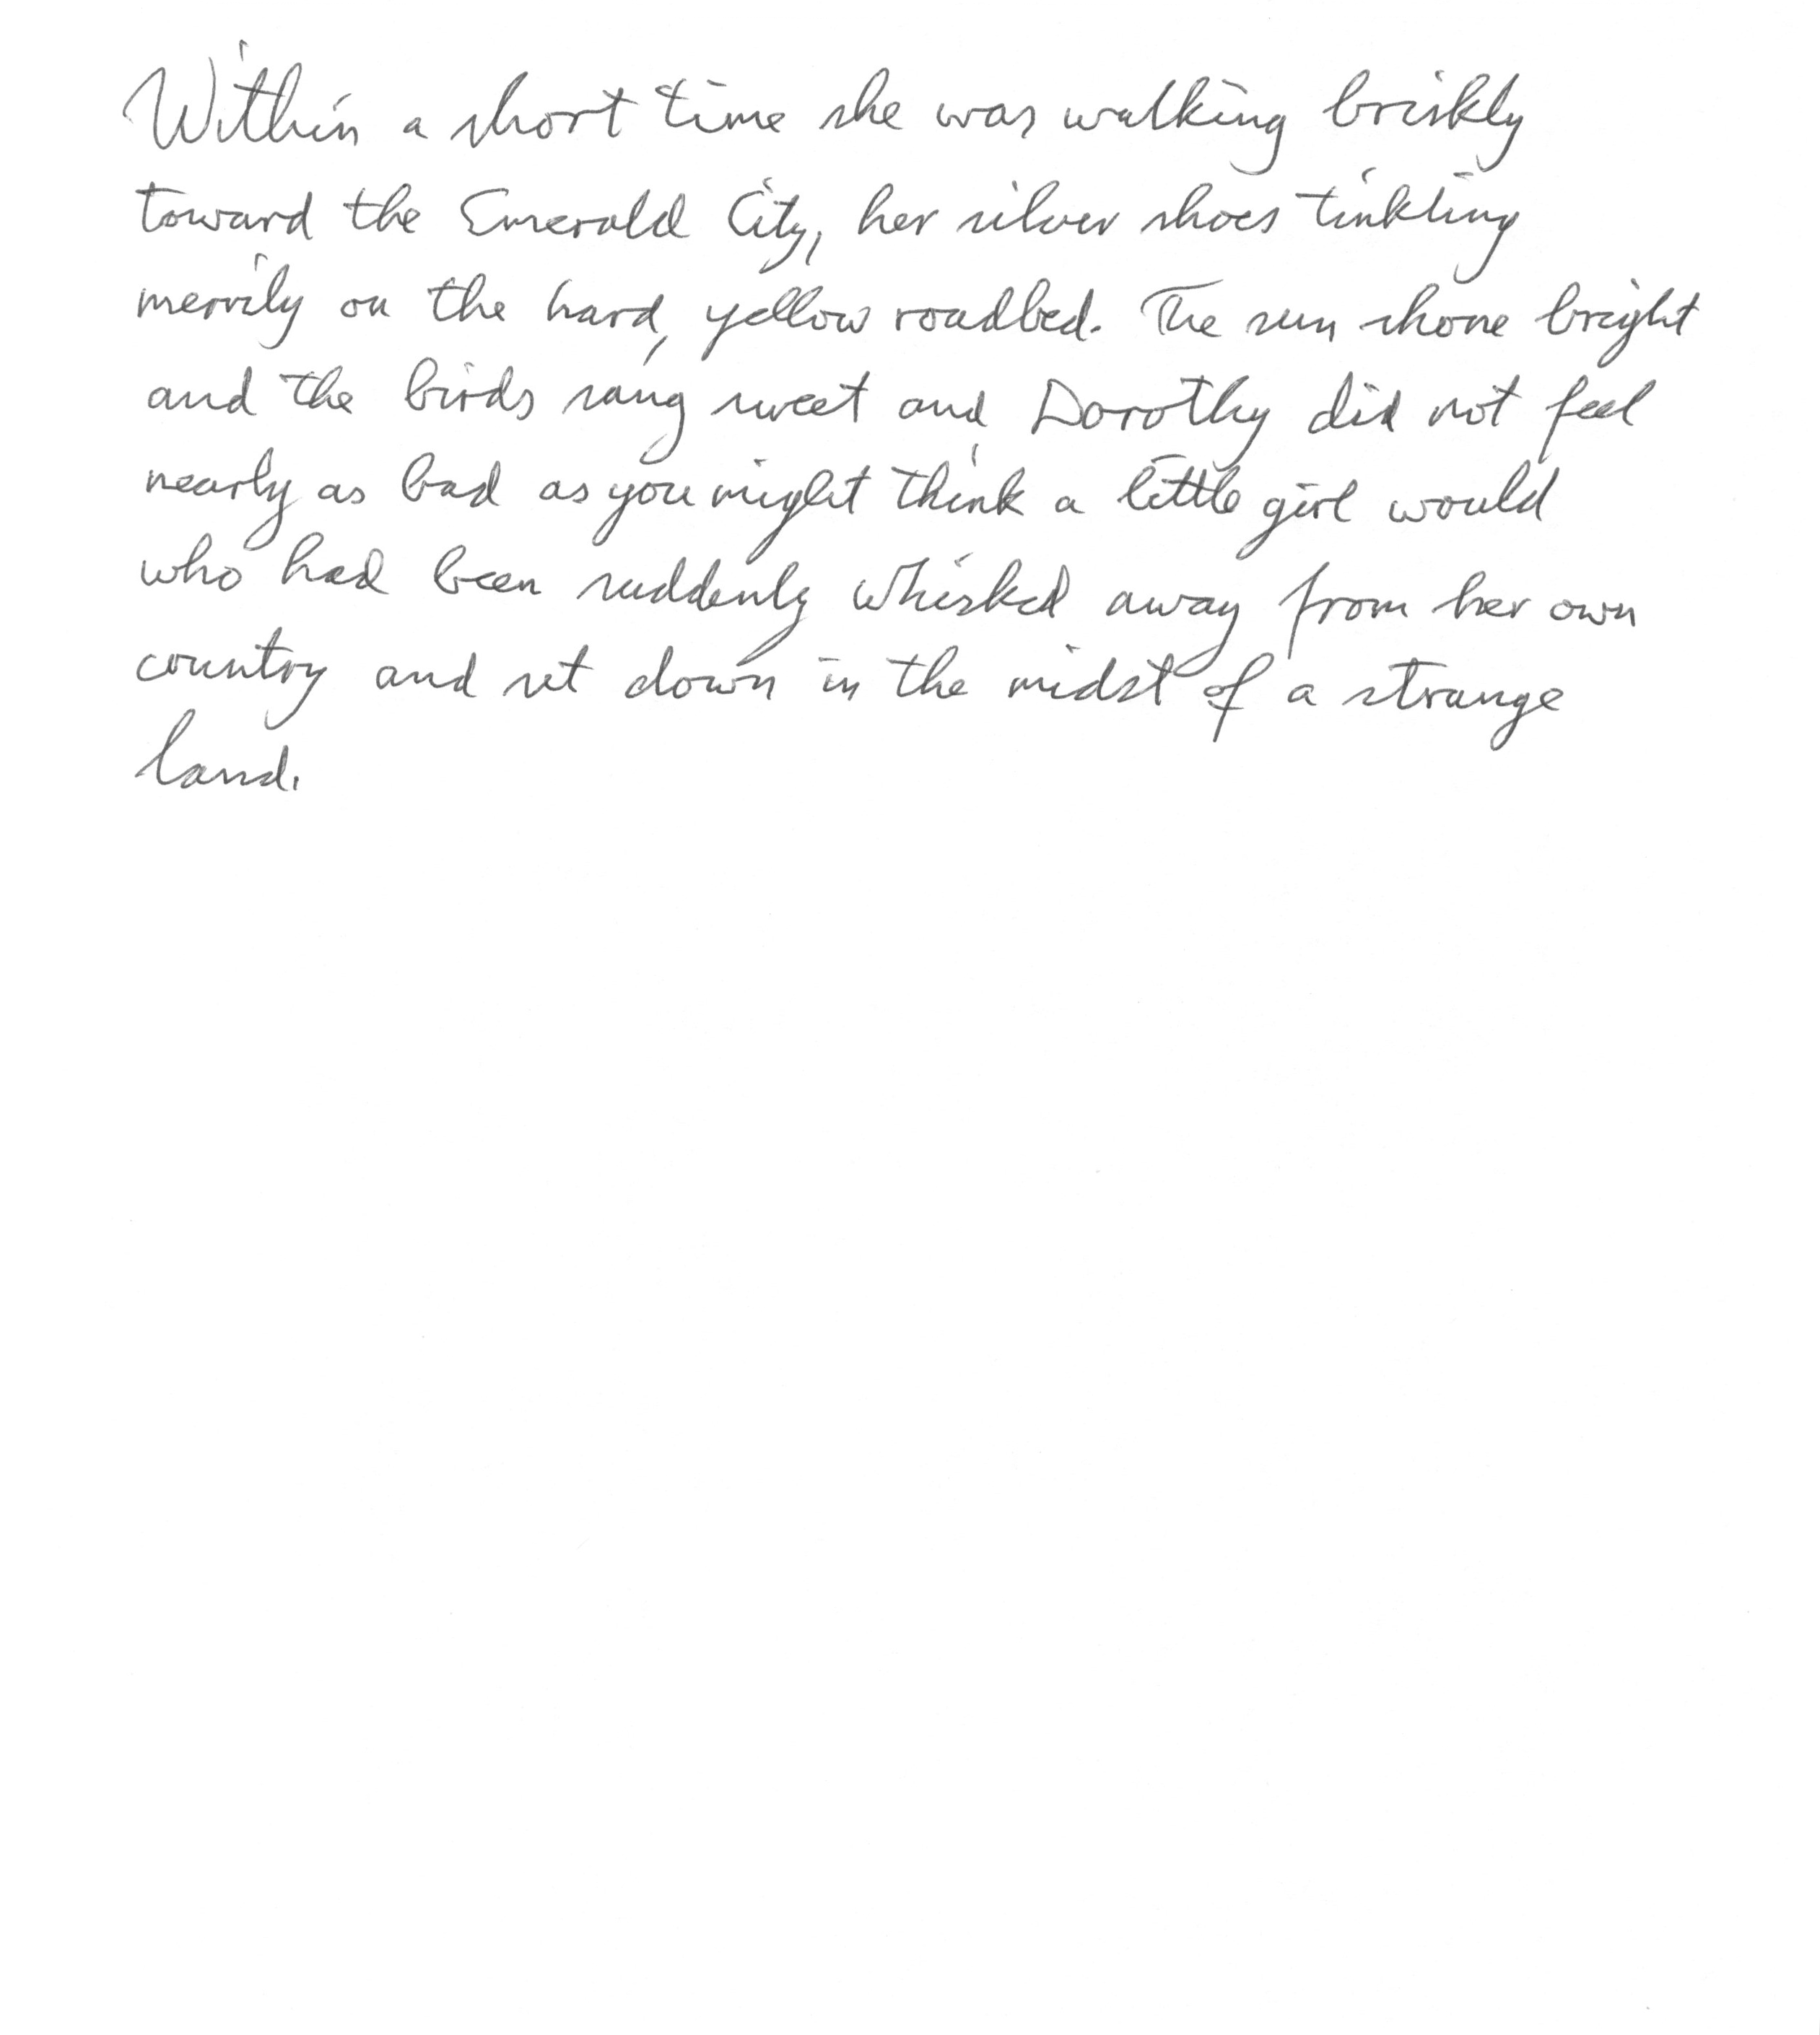 Within a short time she was walking briskly
toward the Emerald City, her silver shoes tinkling
merrily on the hard, yellow roadbed. The sun shone bright
and the birds sang sweet and Dorothy did not feel
nearly as bad as you might think a little girl would
who had been suddenly whisked away from her own
country and set down in the midst of a strange
land.